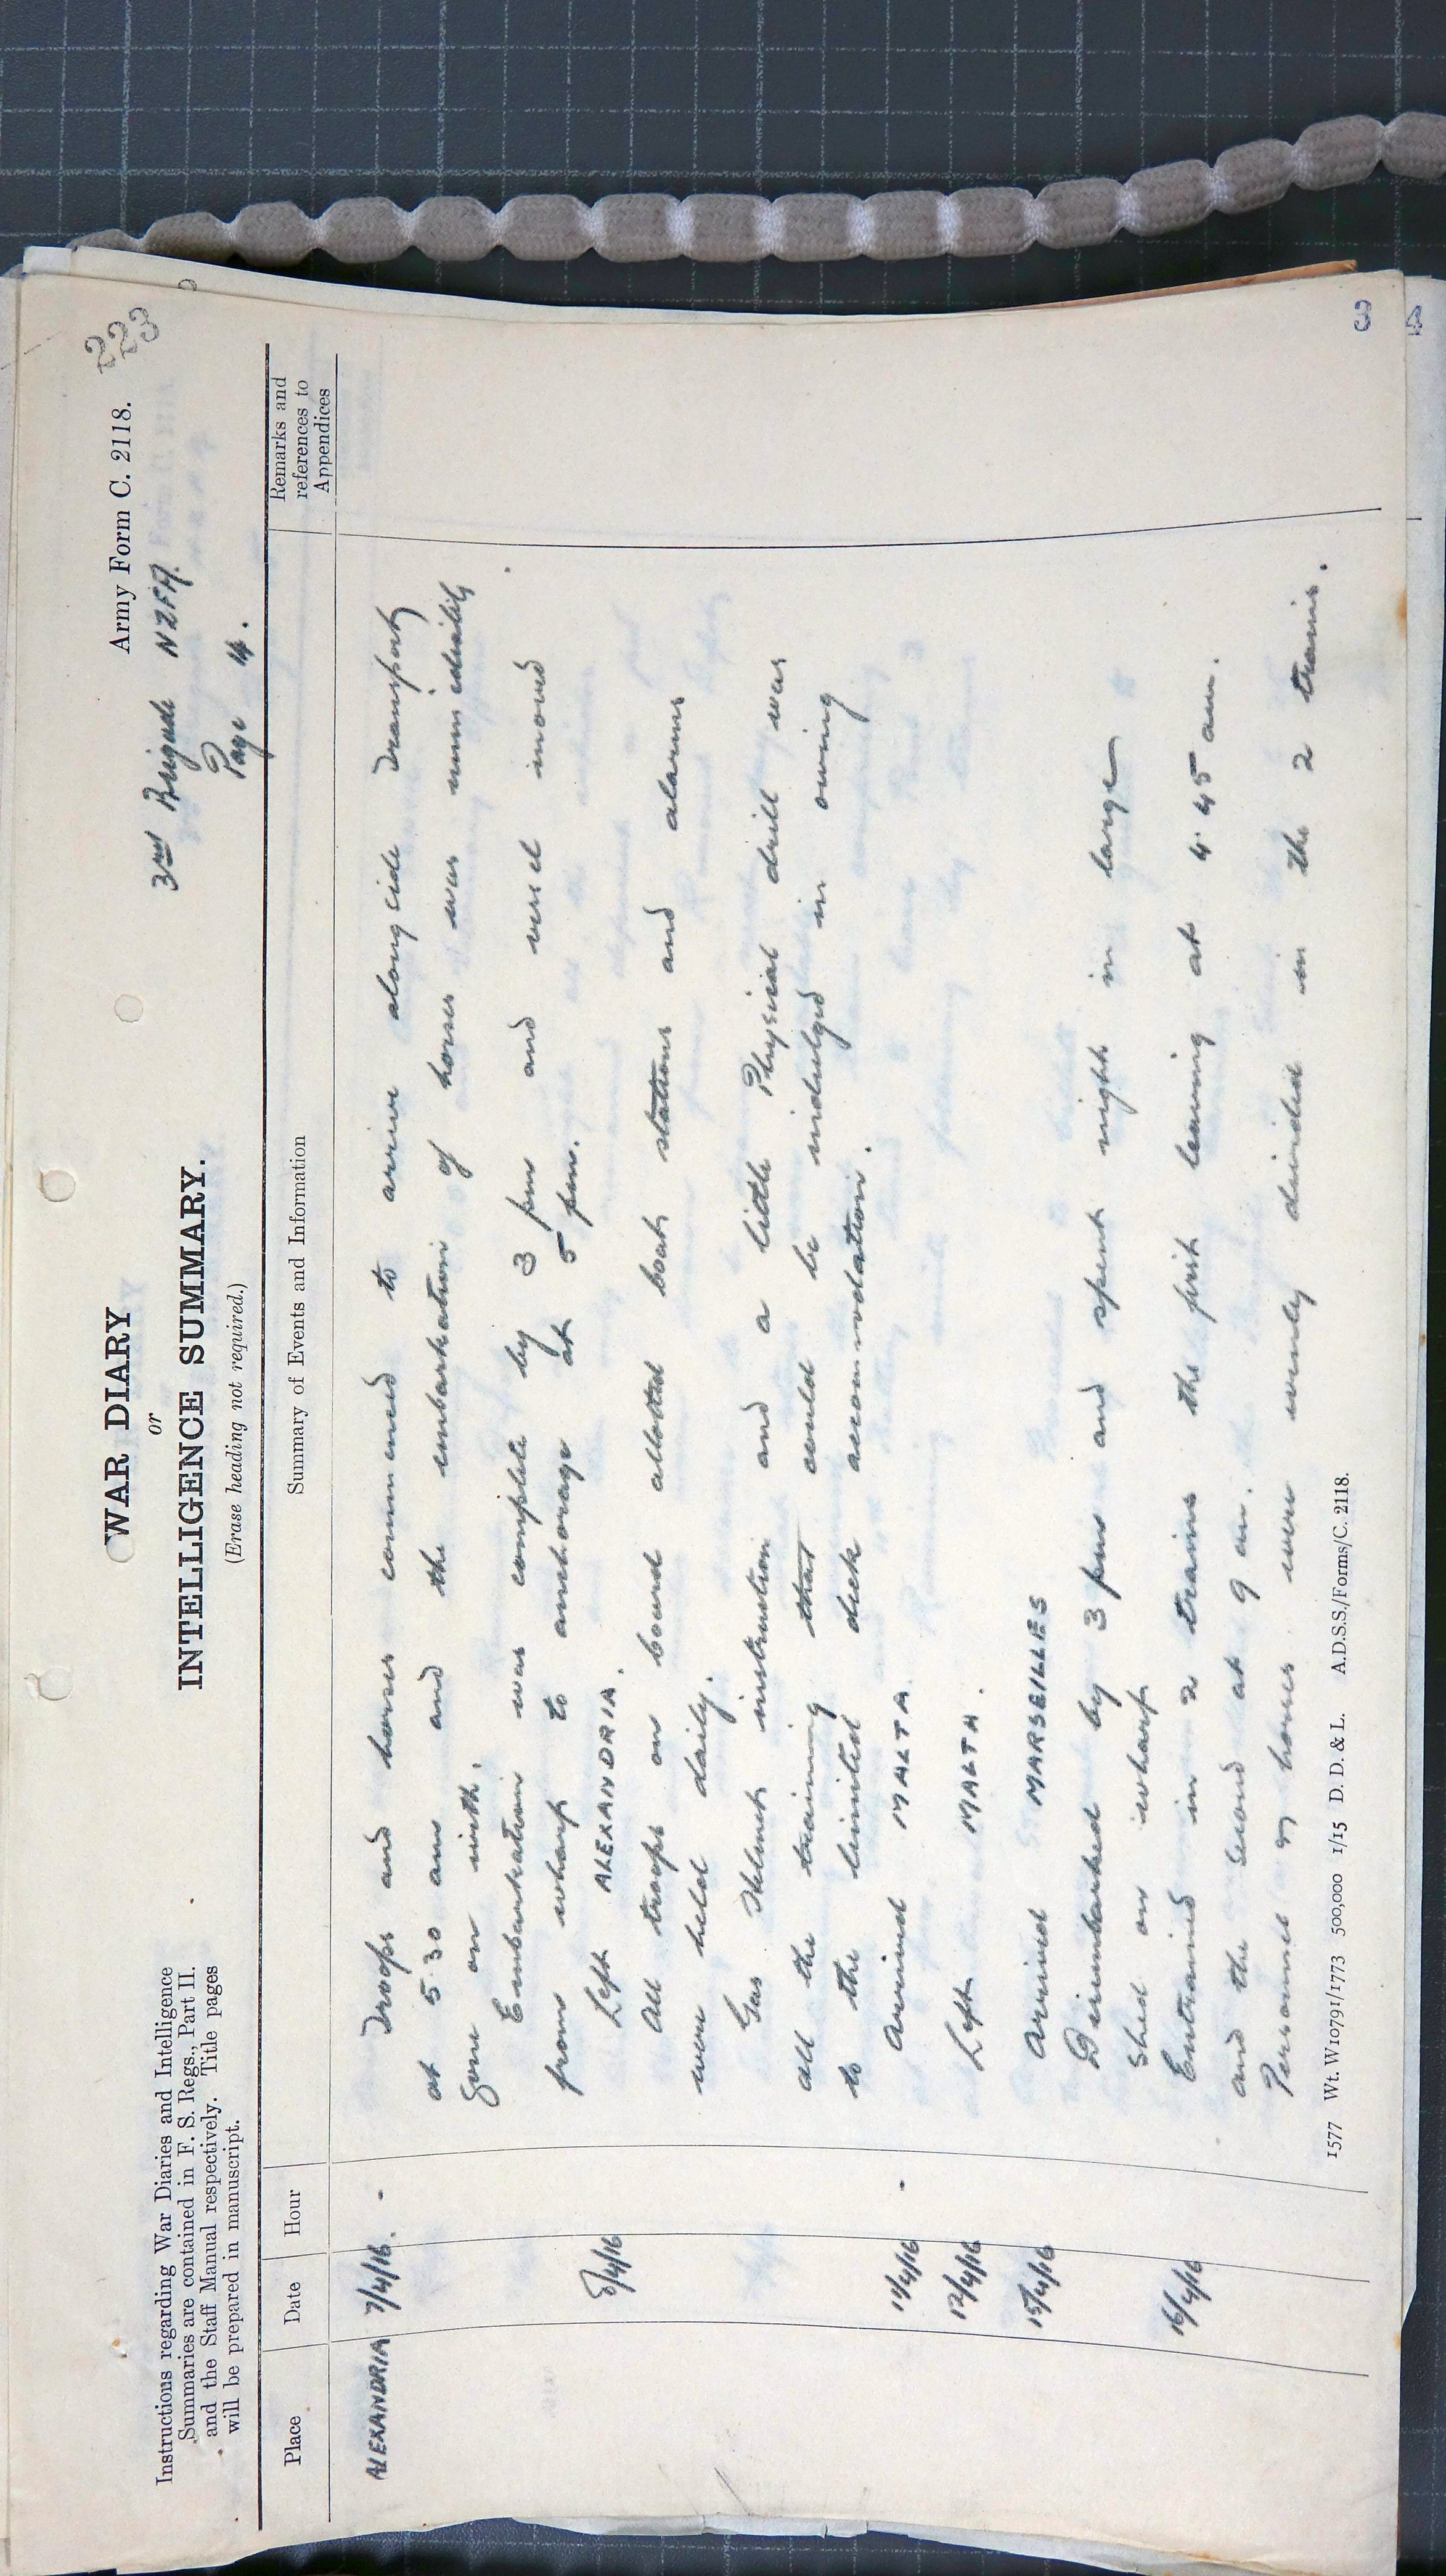 223
Army Form C. 2118.
3rd Brigade NZFA.
Page 4.
WAR DIARY
or
INTELLIGENCE SUMMARY.
(Erase heading not required.)
Instructions regarding War Diaries and Intelligence
Summaries are contained in F. S. Regs., Part II.
and the Staff Manual respectively. Title pages
will be prepared in manuscript.
Place
Date
Hour
Summary of Events and Information
Remarks and
references to
Appendices
ALEXANDRIA 7/4/16. - Troops and horses commenced to arrive alongside Transport
at 5.30 am and the embarkation of horses was immediately
gone on with.
Embarkation was complete by 3 pm and vessel moved
from wharf to anchorage at 5 pm.
8/4/16 Left ALEXANDRIA.
All troops on board allotted boat stations and alarms
were held daily.
Gas Helmet instruction and a little Physical drill was
all the training that could be indulged in owing
to the limited deck accommodation.
11/4/16 - Arrived MALTA
12/4/16 Left MALTA.
15/4/16 Arrived MARSEILLES
Disembarked by 3 pm and spent night in large
shed on wharf
16/4/16 Entrained in 2 trains the first leaving at 4.45 am.
and the second at 9 am.
Personnel & horses were evenly divided in the 2 trains.
1577 Wt. W10791/1773 500,000 1/15 D. D. & L. A.D.S.S./Forms/C. 2118.
3
4